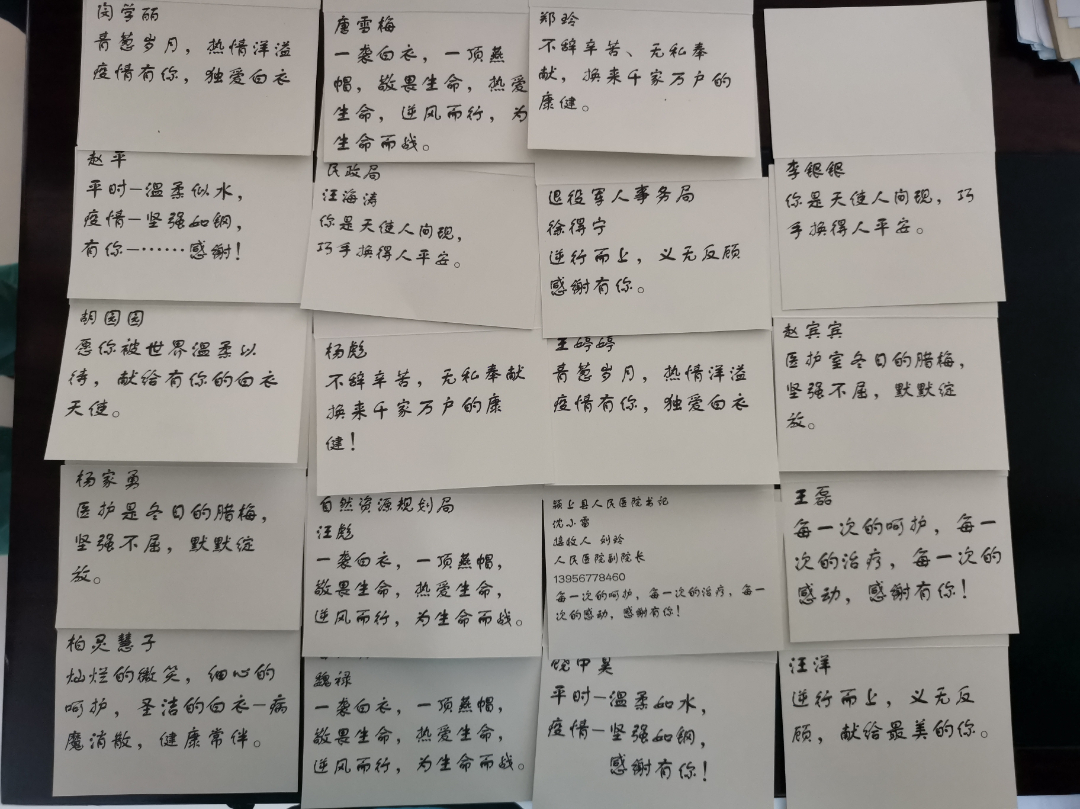 闵学丽
青葱岁月，热情洋溢
疫情有你，独爱白衣
唐雪梅
一袭白衣，一顶燕
帽，敬畏生命，热爱
生命，逆风而行，为
生命而战。
郑玲
不辞辛苦、无私奉
献，换来千家万户的
康健。
赵平
平时—温柔似水，
疫情—坚强如钢，
有你—……感谢！
民政局
汪海涛
你是天使人间现，
巧手换得人平安。
退役军人事务局
徐得宁
逆行而上，义无反顾
感谢有你。
李银银
你是天使人间现，巧
手换得人平安。
胡园园
愿你被世界温柔以
待，献给有你的白衣
天使。
杨彪
不辞辛苦，无私奉献
换来千家万户的康
健！
王婷婷
青葱岁月，热情洋溢
疫情有你，独爱白衣
赵宾宾
医护室冬日的腊梅，
坚强不屈，默默绽
放。
杨家勇
医护是冬日的腊梅，
坚强不屈，默默绽
放。
自然资源规划局
汪彪
一袭白衣，一顶燕帽，
敬畏生命，热爱生命，
逆风而行，为生命而战。
颍上县人民医院书记
沈小雷
接收人 刘玲
人民医院副院长
13956778460
每一次的呵护，每一次的治疗，每一
次的感动，感谢有你！
王磊
每一次的呵护，每一
次的治疗，每一次的
感动，感谢有你！
柏灵慧子
灿烂的微笑，细心的
呵护，圣洁的白衣—病
魔消散，健康常伴。
魏禄
一袭白衣，一顶燕帽，
敬畏生命，热爱生命，
逆风而行，为生命而战。
倪中昊
平时—温柔如水，
疫情—坚强如钢，
感谢有你！
汪洋
逆行而上，义无反
顾，献给最美的你。